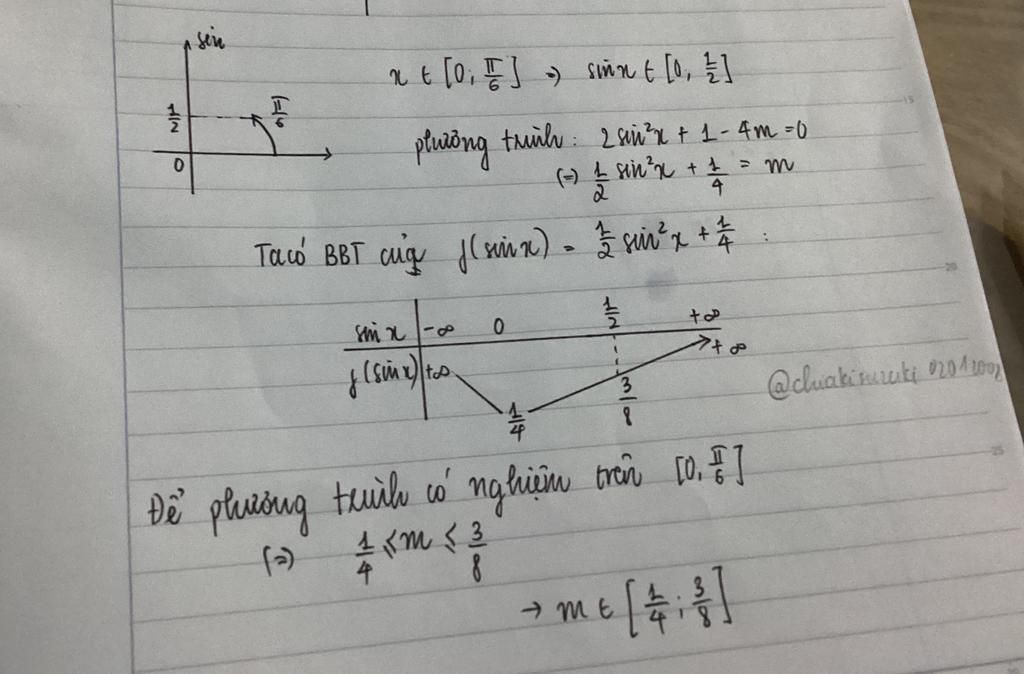 sin
1/2
π/6
0
x ∈ [0, π/6] => sinx ∈ [0, 1/2]
phương trình: 2sin²x + 1 - 4m = 0
(=) 1/2 sin²x + 1/4 = m
Ta có BBT của f(sinx) = 1/2 sin²x + 1/4 :
sinx -∞ 0 1/2 +∞
f(sinx) +∞ 1/4 3/8 +∞
@chiakisuzuki02012002
Để phương trình có nghiệm trên [0, π/6]
(=) 1/4 ≤ m ≤ 3/8
→ m ∈ [1/4 ; 3/8]
15
20
25